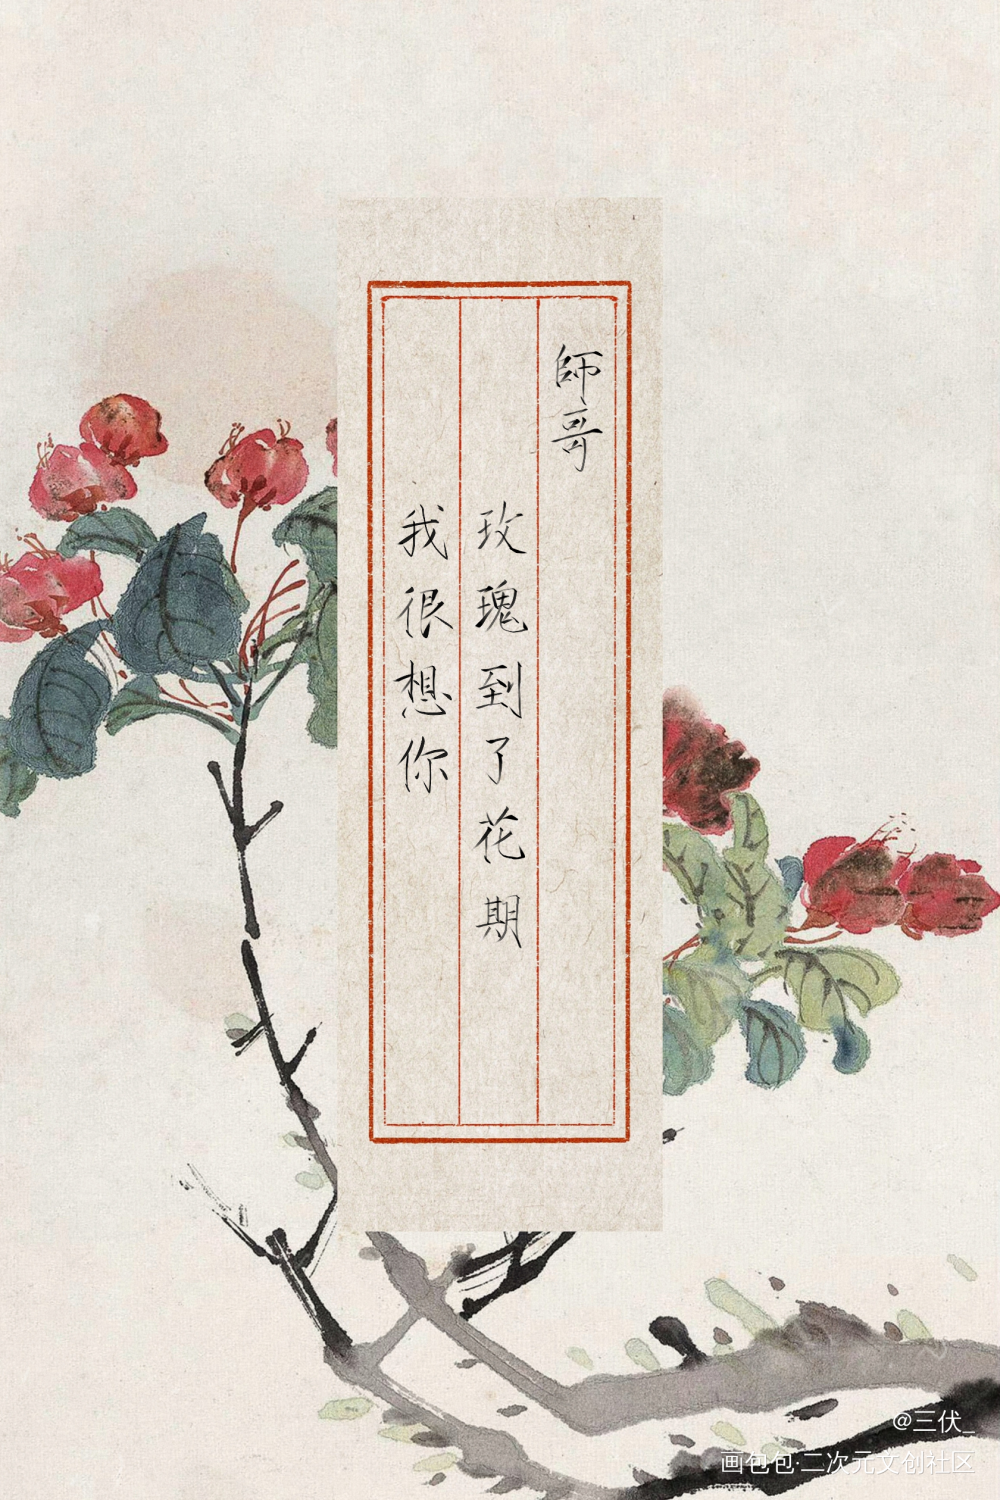 師哥
玫瑰到了花期
我很想你
@三伏_
画包包·二次元文创社区